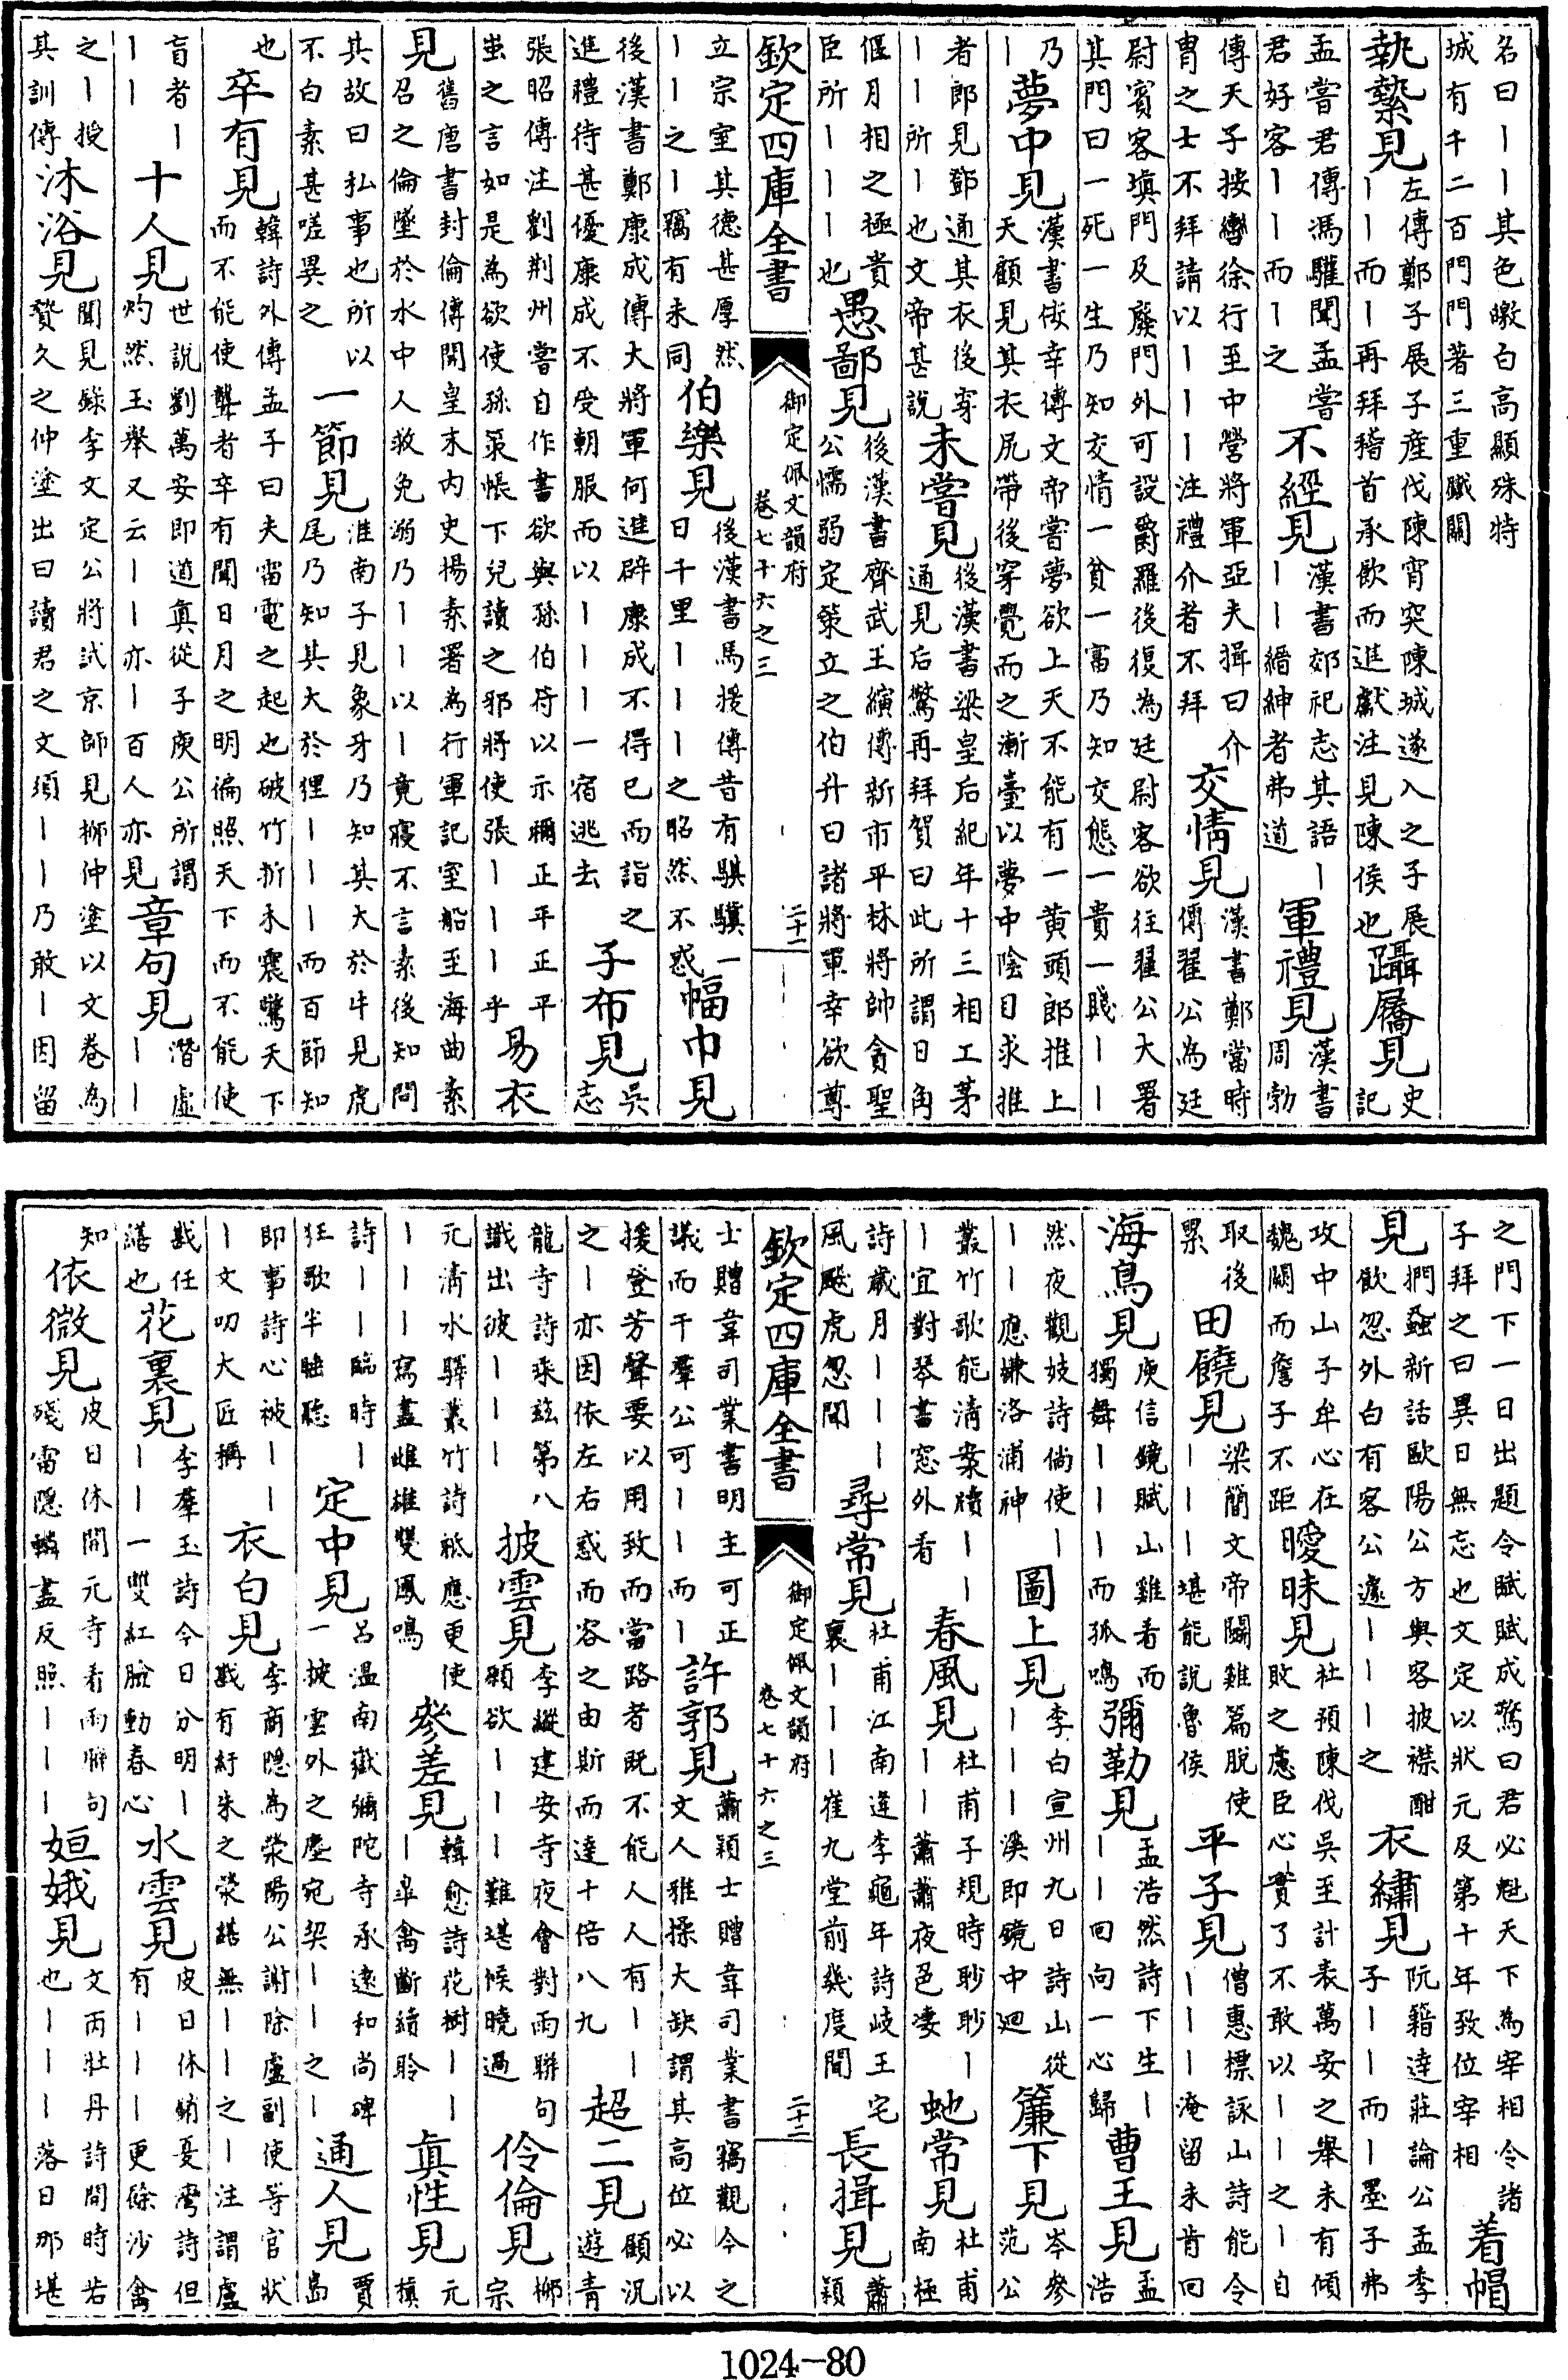 名曰丨丨其色皦白高顯殊特城有千二百門門著三重鐵關
執摰見左傳鄭子展子産伐陳宵突陳城遂入之子展丨丨而丨再拜稽首承飲而進獻注見陳侯也躡屩見史記
孟嘗君傳馮驩聞孟嘗君好客丨丨而丨之不經見漢書郊祀志其語丨丨丨縉紳者弗道軍禮見漢書周勃
傳天子按轡徐行至中營將軍亞夫揖曰介胄之士不拜請以丨丨丨注禮介者不拜交情見漢書鄭當時傳翟公為廷
尉賓客填門及廢門外可設爵羅後復為廷尉客欲往翟公大署其門曰一死一生乃知交情一貧一富乃知交態一貴一賤丨丨
乃丨夢中見漢書佞幸傳文帝嘗夢欲上天不能有一黄頭郎推上天顧見其衣尻帶後穿覺而之漸臺以夢中陰目求推
者郎見鄧通其衣後穿丨丨所丨也文帝甚説未嘗見後漢書梁皇后紀年十三相工茅通見后驚再拜賀曰此所謂日角
偃月相之極貴臣所丨丨丨也愚鄙見後漢書齊武王縯傳新市平林將帥貪聖公懦弱定策立之伯升曰諸將軍幸欲尊
欽定四庫全書 御定佩文韻府卷七十六之三 二十一
立宗室其德甚厚然丨丨之丨竊有未同伯樂見後漢書馬援傳昔有騏驥一日千里丨丨丨之昭然不惑幅巾見
後漢書鄭康成傳大將軍何進辟康成不得已而詣之進禮待甚優康成不受朝服而以丨丨丨一宿逃去子布見吳志
張昭傳注劉荆州嘗自作書欲與孫伯符以示禰正平正平蚩之言如是為欲使孫策帳下兒讀之邪將使張丨丨丨乎易衣
見舊唐書封倫傳開皇末内史楊素署為行軍記室船至海曲素召之倫墜於水中人救免溺乃丨丨以丨竟寢不言素後知問
其故曰私事也所以不白素甚嗟異之一節見淮南子見象牙乃知其大於牛見虎尾乃知其大於狸丨丨丨而百節知
也卒有見韓詩外傳孟子曰夫雷電之起也破竹折木震驚天下而不能使聾者卒有聞日月之明徧照天下而不能使
盲者丨丨丨十人見世説劉萬安即道真從子庾公所謂灼然玉舉又云丨丨亦丨百人亦見章句見潛虚丨丨
之丨授其訓傳沐浴見聞見録李文定公將試京師見栁仲塗以文卷為贄久之仲塗出曰讀君之文須丨丨乃敢丨因留
之門下一日出題令賦賦成驚曰君必魁天下為宰相令諸子拜之曰異日無忘也文定以狀元及第十年致位宰相着帽
見捫蝨新話歐陽公方與客披襟酣飲忽外白有客公遽丨丨丨之衣繡見阮籍達莊論公孟李子丨丨而丨墨子弗
攻中山子牟心在魏闕而詹子不距曖昧見杜預陳伐吳至計表萬安之舉未有傾敗之慮臣心實了不敢以丨丨之丨自
取後累田饒見梁簡文帝鬭雞篇脱使丨丨丨堪能説魯侯平子見僧惠標詠山詩能令丨丨丨淹留未肯回
海鳥見庾信鏡賦山雞看而獨舞丨丨丨而孤鳴彌勒見孟浩然詩下生丨丨丨回向一心歸曹王見孟浩
然夜觀妓詩倘使丨丨丨應嫌洛浦神圖上見李白宣州九日詩山從丨丨丨溪即鏡中迴簾下見岑參范公
叢竹歌能清案牘丨丨丨宜對琴書窓外看春風見杜甫子規時眇眇丨丨丨蕭蕭夜色凄虵常見杜甫南極
詩歲月丨丨丨風飇虎忽聞尋常見杜甫江南逢李龜年詩岐王宅裏丨丨丨崔九堂前幾度聞長揖見蕭穎
欽定四庫全書 御定佩文韻府卷七十六之三 二十二
士贈韋司業書明主可正議而干羣公可丨丨而丨許郭見蕭穎士贈韋司業書竊觀今之文人雅操大缺謂其高位必以
援登芳聲要以用致而當路者既不能人人有丨丨之丨亦因依左右惑而容之由斯而達十倍八九超二見顧況遊青
龍寺詩乘兹第八識出彼丨丨丨披雲見李縱建安寺夜會對雨聯句願欲丨丨丨難堪候曉過伶倫見栁宗
元清水驛叢竹詩祗應更使丨丨丨寫盡雌雄雙鳳鳴參差見韓愈詩花樹丨丨丨臯禽斷續聆真性見元稹
詩丨丨臨時丨狂歌半睡聴定中見吕温南嶽彌陀寺承遠和尚碑一披雲外之塵宛契丨丨之丨通人見賈島
即事詩心被丨丨丨文叨大匠稱衣白見李商隠為滎陽公謝除盧副使等官狀戡有紆朱之榮綰無丨丨之丨注謂盧
戡任繕也花裏見李羣玉詩今日分明丨丨丨一雙紅臉動春心水雲見皮日休銷夏灣詩但有丨丨丨更餘沙禽
知依微見皮日休開元寺看雨聯句殘雷隠轔盡反照丨丨丨姮娥見文丙牡丹詩開時若也丨丨丨落日那堪
1024-80